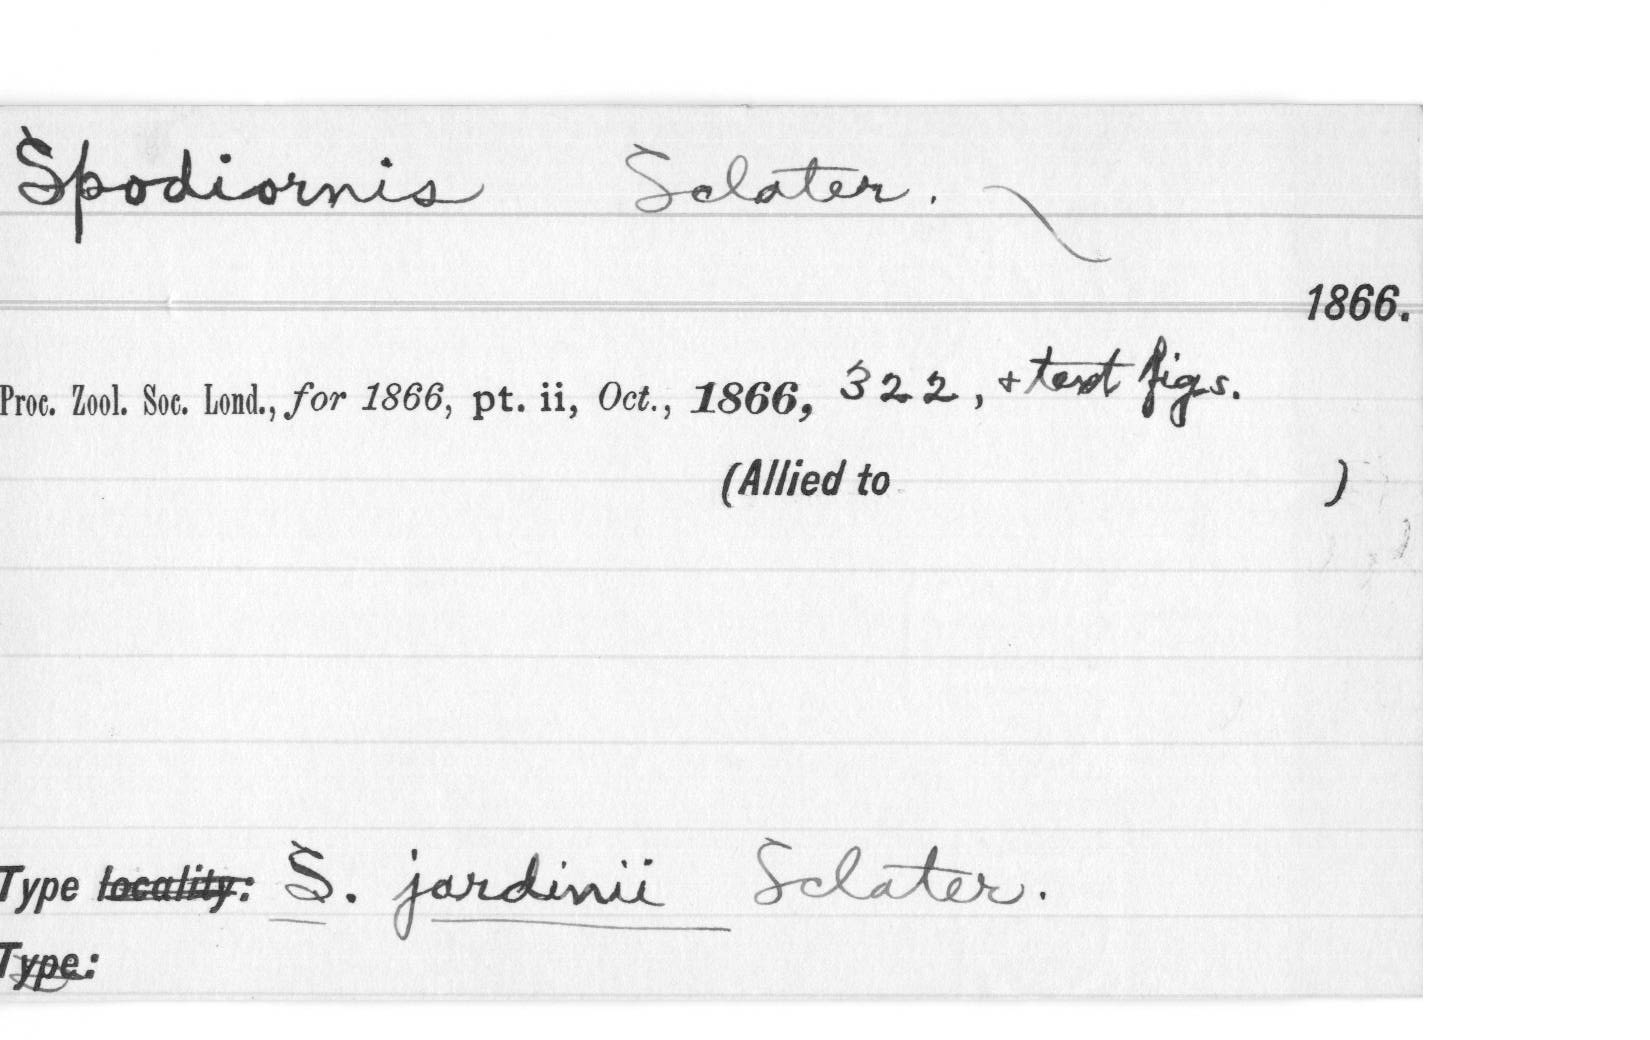 Spodiornis Sclater.
1866.
Proc. Zool. Soc. Lond., for 1866, pt. ii, Oct., 1866, 322, + text figs.
(Allied to )
Type locality: S. jardinii Sclater.
Type: